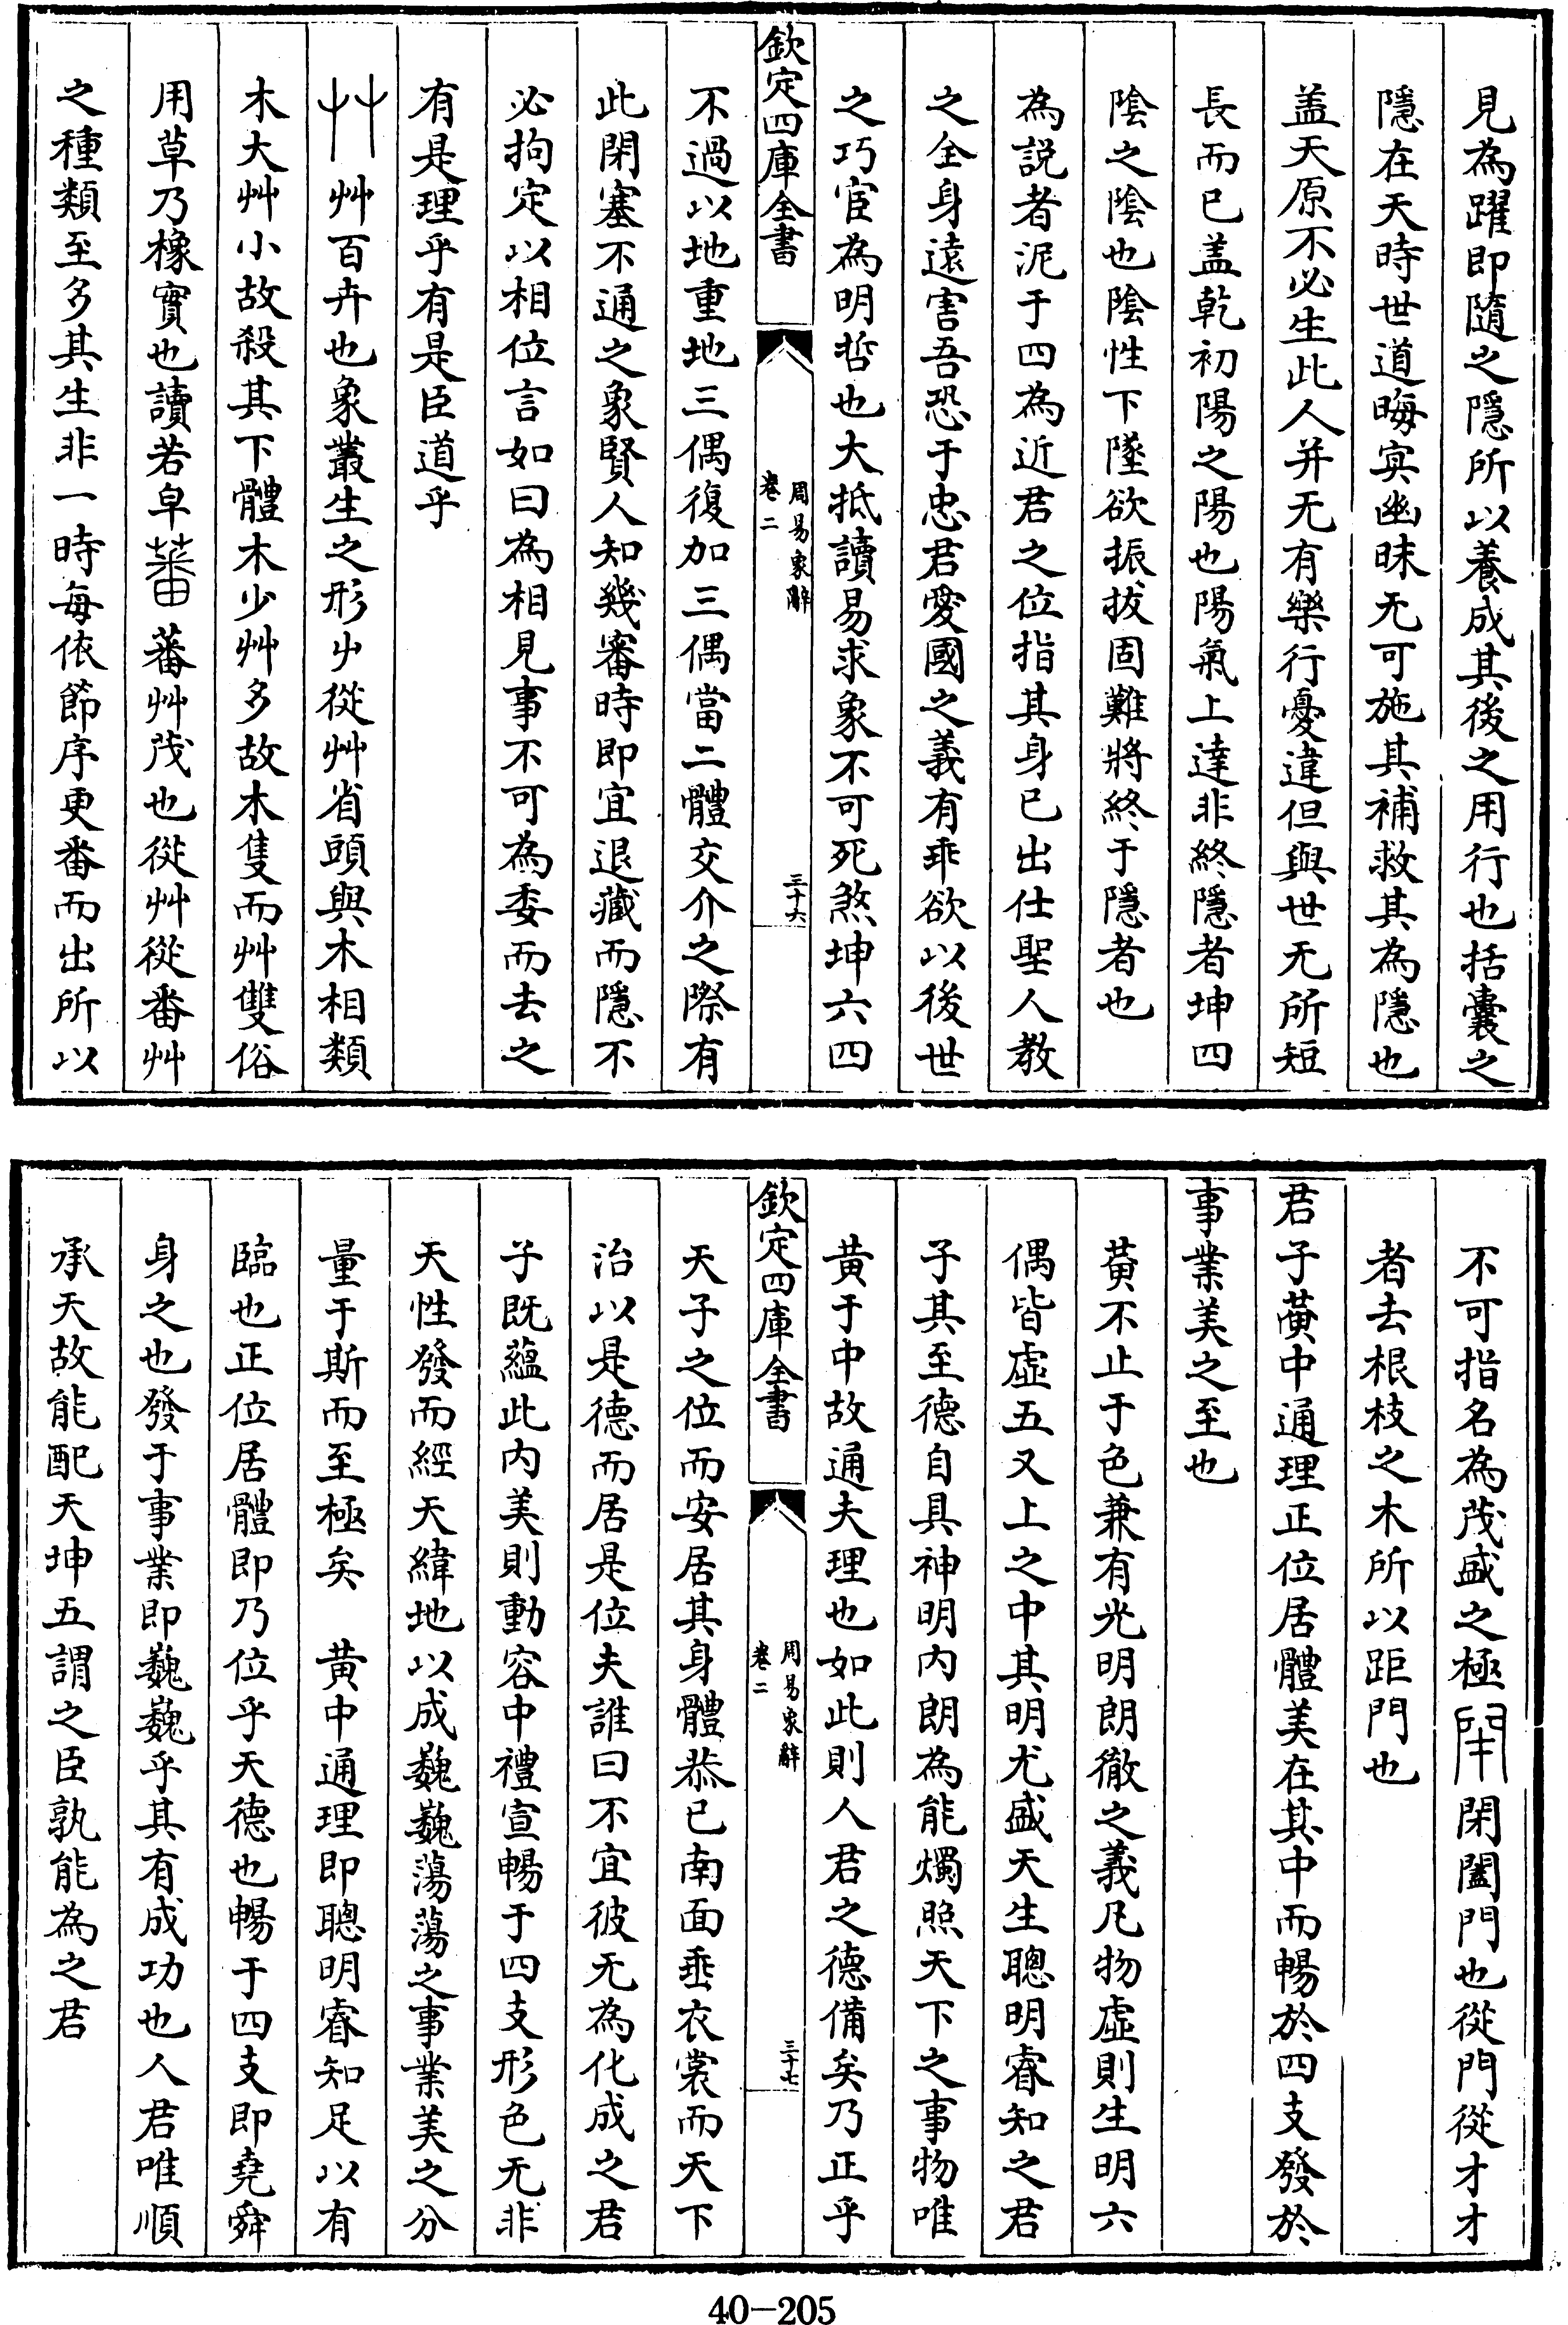 見為躍即隨之隱所以養成其後之用行也括囊之
隱在天時世道晦㝠幽昧无可施其補救其為隱也
盖天原不必生此人并无有樂行憂違但與世无所短
長而已盖乾初陽之陽也陽氣上達非終隱者坤四
陰之陰也陰性下墜欲振拔固難將終于隱者也
為説者泥于四為近君之位指其身已出仕聖人教
之全身遠害吾恐于忠君愛國之義有乖欲以後世
之巧宦為明哲也大抵讀易求象不可死煞坤六四
欽定四庫全書
周易象辭
卷二
三十六
不過以地重地三偶復加三偶當二體交介之際有
此閉塞不通之象賢人知幾審時即宜退藏而隱不
必拘定以相位言如曰為相見事不可為委而去之
有是理乎有是臣道乎
艸艸百卉也象叢生之形屮從艸省頭與木相類
木大艸小故殺其下體木少艸多故木隻而艸雙俗
用草乃橡實也讀若皁蕃蕃艸茂也從艸從番艸
之種類至多其生非一時每依節序更番而出所以
不可指名為茂盛之極閉閉闔門也從門從才才
者去根枝之木所以距門也
君子黃中通理正位居體美在其中而暢於四支發於
事業美之至也
黃不止于色兼有光明朗徹之義凡物虛則生明六
偶皆虛五又上之中其明尤盛天生聰明睿知之君
子其至德自具神明内朗為能燭照天下之事物唯
黄于中故通夫理也如此則人君之德備矣乃正乎
欽定四庫全書
周易象辭
卷二
三十七
天子之位而安居其身體恭已南面垂衣裳而天下
治以是德而居是位夫誰曰不宜彼无為化成之君
子既蘊此内美則動容中禮宣暢于四支形色无非
天性發而經天緯地以成巍巍蕩蕩之事業美之分
量于斯而至極矣　黄中通理即聰明睿知足以有
臨也正位居體即乃位乎天德也暢于四支即堯舜
身之也發于事業即巍巍乎其有成功也人君唯順
承天故能配天坤五謂之臣孰能為之君
40-205